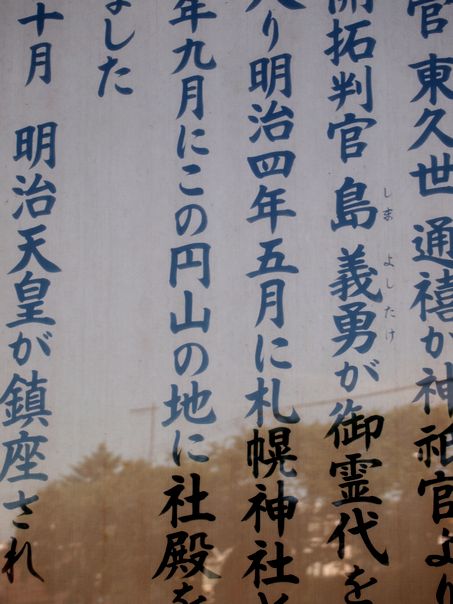 官 東久世 通禧が神祇官より
開拓判官 島 義勇が御霊代を
しま よしたけ
入り明治四年五月に札幌神社と
年九月にこの円山の地に社殿を
ました
十月 明治天皇が鎮座され